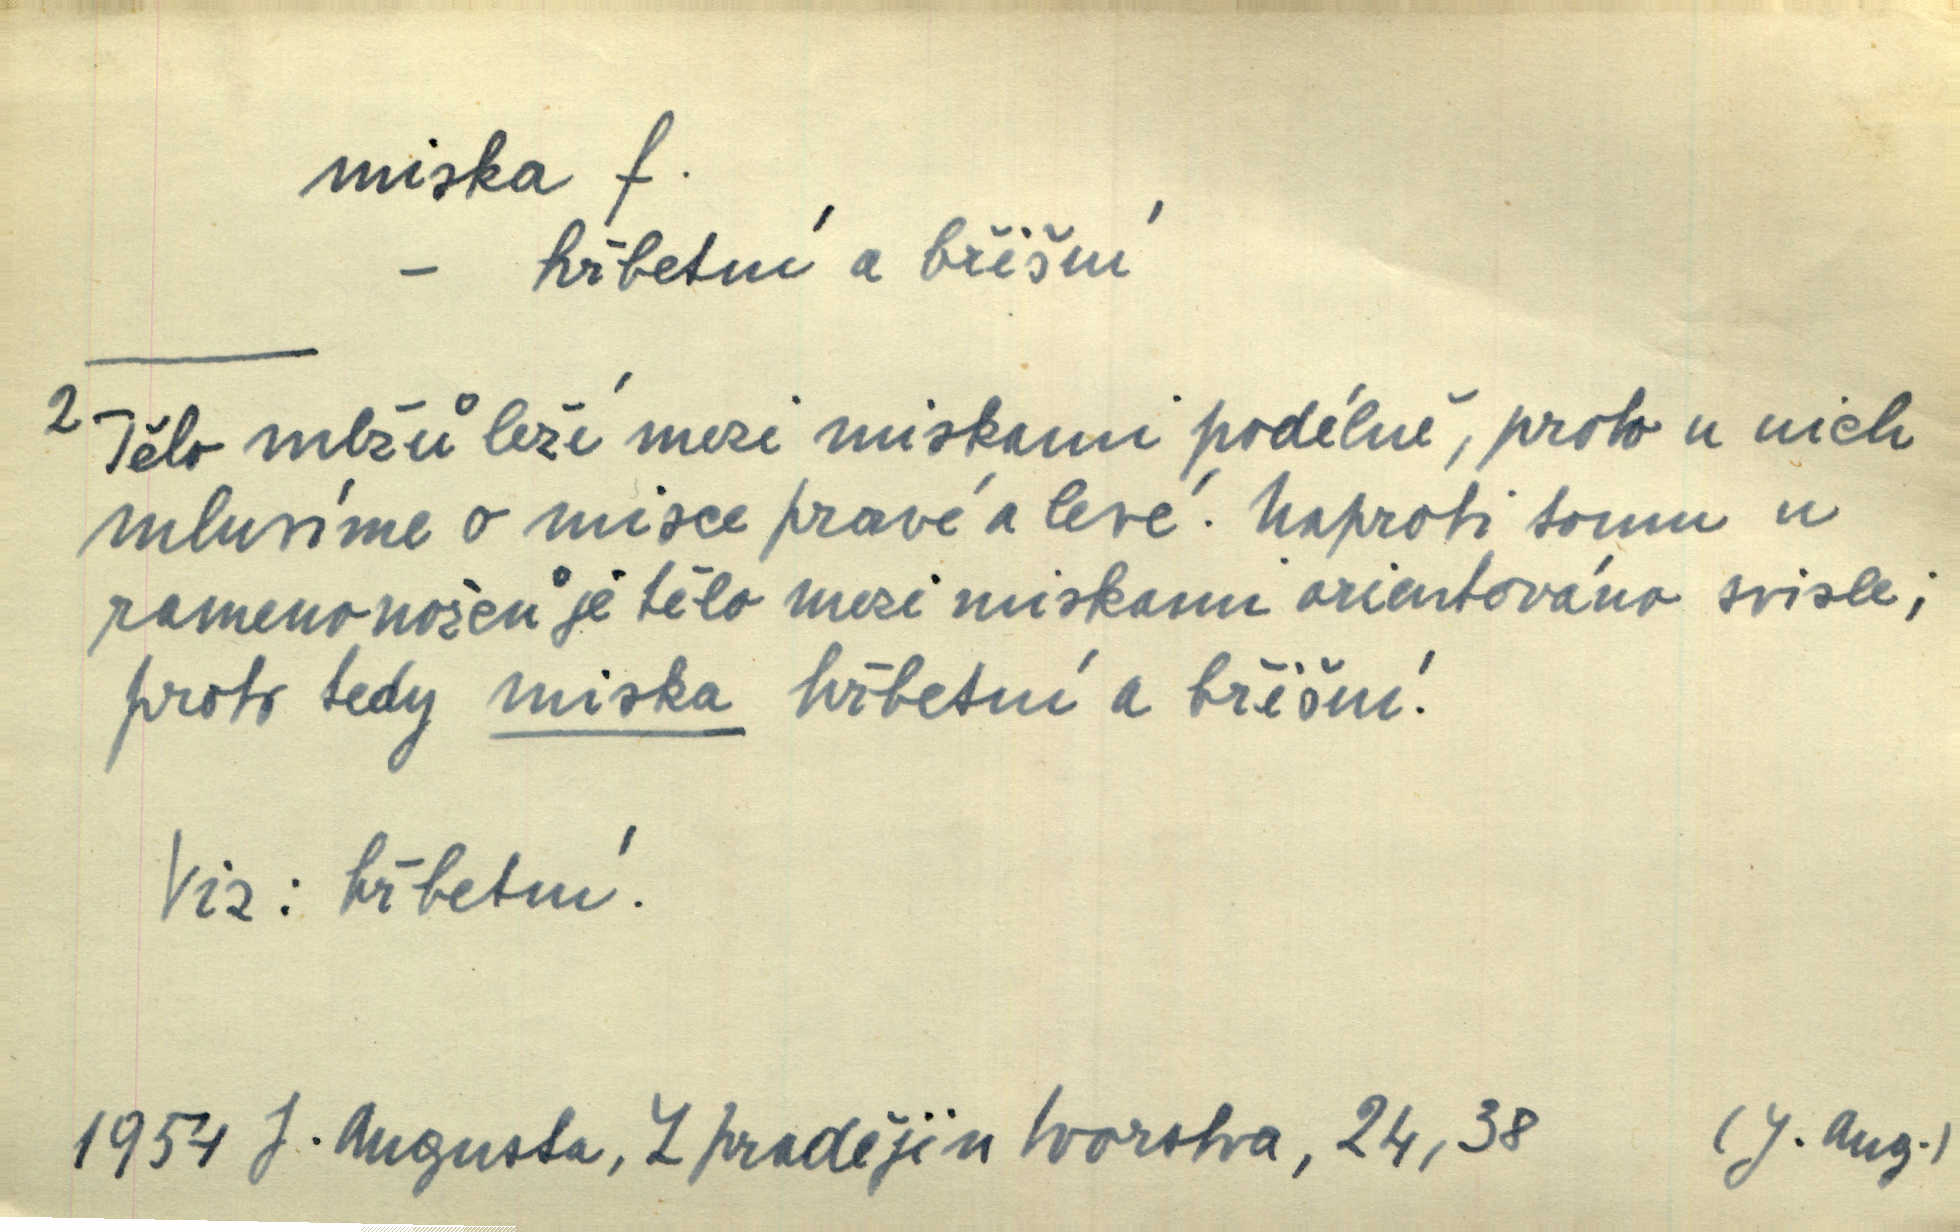 miska f.
– hřbetní a břišní
2 Tělo mlžů leží mezi miskami podélně, proto u nich
mluvíme o misce pravé a levé. Naproti tomu u
ramenonožců je tělo mezi miskami orientováno svisle;
proto tedy miska hřbetní a břišní.
Viz: hřbetní.
1954 J. Augusta, Z pradějin tvorstva, 24, 38 (J. Aug.)